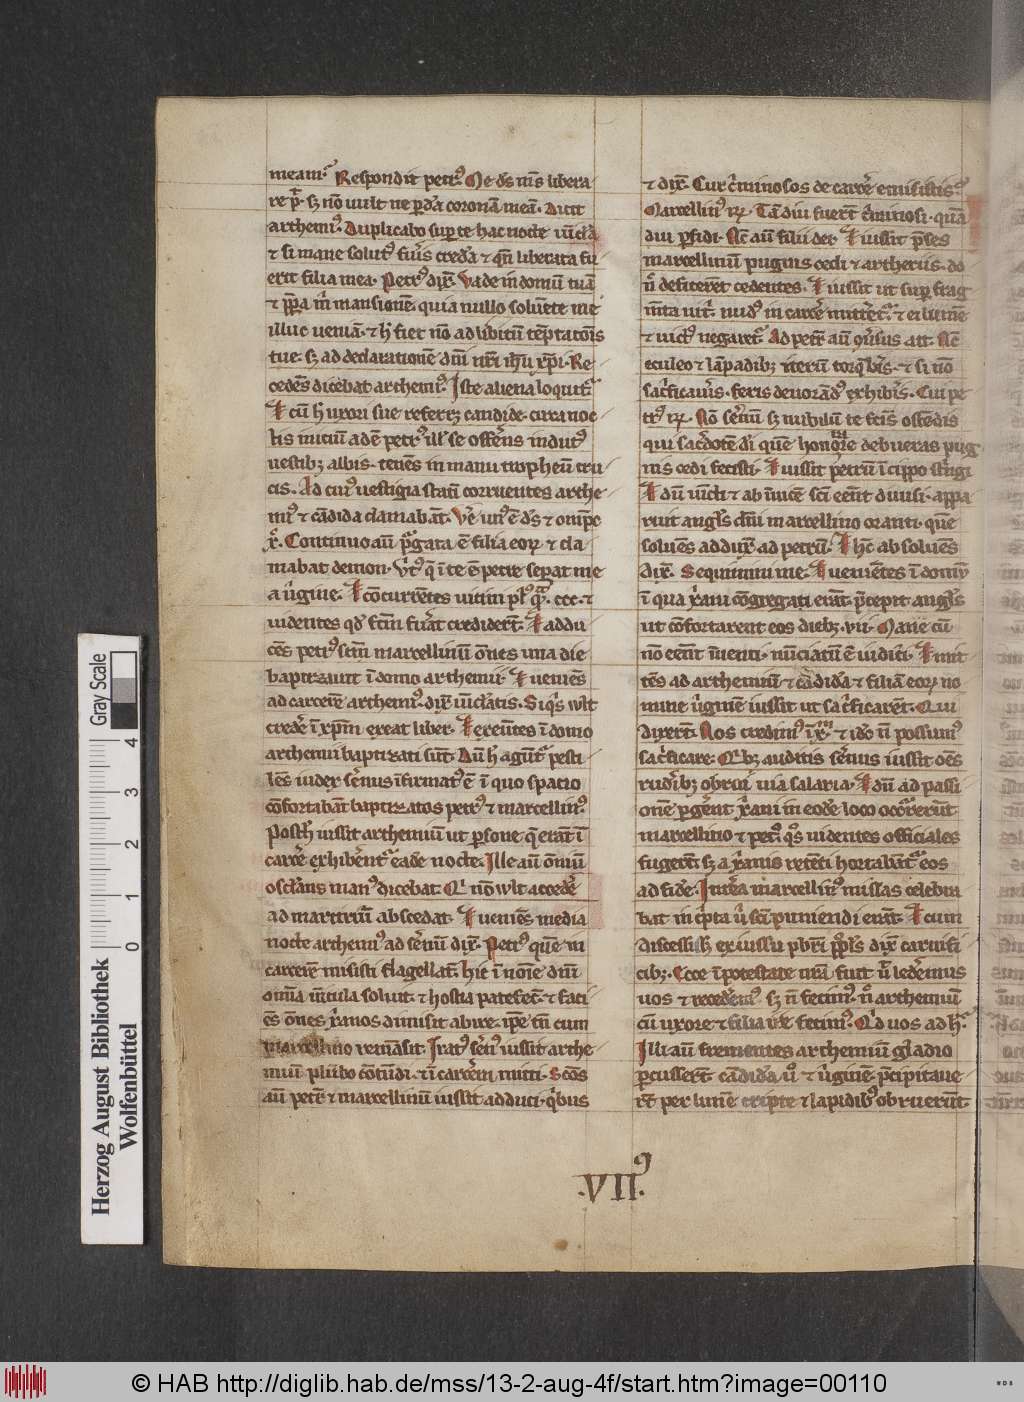 meam. Respondit petrꝰ. Me ds̄ ms̄ libera
re pt̄. sꝫ nō uult ne ꝑdā coronā meā. Dixit
archemiꝰ. Duplicabo suꝑ te hac nocte uīcla
⁊ si mane solutꝰ fuis credā ⁊ qn̄ liberata fu
erit filia mea. Petrꝰ dix̄. Vade in domū tuā
⁊ p̄pa m̄ mansionē. quia nullo soluēte me
illuc ueniā. ⁊ h̄ fiet nō ad libitū tēptatōis
tue. sꝫ ad declarationē dn̄i nr̄i ih̄u xp̄i. Re
cedēs dicebat archemiꝰ. Iste aliena loquit̄
Et cū h̄ uxori sue referrꝫ candide. circa noc
tis iniciū adē petrꝰ ill' se offerēs indutꝰ
uestibꝫ albis. tenēs in manu tropheū cru
cis. Ad cuiꝰ uestigia stati corruentes arche
miꝰ ⁊ cādida clamabāt. Ve unꝰ ē ds̄ ⁊ omīpo
x̄. Continuo aū p̄gata ē filia eoꝝ ⁊ cla
mabat demon. Virtꝰ q̄ ī te ē petre separat me
a uirgine. Et cōcurrētes uicini plꝰ qᵃ ccc. ⁊
uidentes qd̄ fc̄m fuāt crediderūt. Et addu
cēs petrꝰ scm̄ marcellinū ōnes una die
baptizauit ī domo archemii. Et ueniēs
ad carcerē archemiꝰ. dix̄ uīclatis. Siqis wlt
credē ī xp̄m exeat liber. Et exeūtes ī domo
archemii baptizati sūt. Dū h̄ agūt̄ pesti
lēs iudex serenus ifirmatꝰ ē ī quo spacio
cōfortabāt baptizatos petrꝰ ⁊ marcellinꝰ.
Postꝫ iussit archemiū ut ꝑsone q̄ erāt ī
carcē exhibent̄ eadē nocte. Ille aū ōniū
osclans manꝰ dicebat. Qi nō wlt accedē
ad martiriū abscedat. Et ueniēs media
nocte archemiꝰ ad serenū dix̄. Petrꝰ quē in
carcerē misisti flagellatū. hic ī noīe dn̄i
omīa uīcula soluit. ⁊ hostia patefec̄. ⁊ faci
ēs ōnes xanos dimisit abire. ip̄e tn̄ cum
marcellino remāsit. Iratꝰ serenꝰ iussit arche
miū plūbo cōtūdi. ⁊ ī carcerem mitti. Scōs
aū petrū ⁊ marcellinū iussit adduci. qbus
⁊ dix̄. Cur criminosos de carcē emisistis.
Marcellinꝰ rꝫ. Tā diu fuerūt criminosi. quā
diu ꝑfidi. Nc̄ aū filii dei. Et iussit p̄ses
marcellinū pugnis cedi ⁊ artherius. do
n̄ desiterēt cedentes. Et iussit ut suꝑ frag
mīta uitri nudꝰ in carcē mitteret̄. ⁊ ei lumē
⁊ uictꝰ negaret̄. Ad petrū aū 9uersus ait. Nc̄
eculeo ⁊ lāpadibꝫ iterū torqueb̄is. ⁊ si nō
sac̄ficaueris. feris deuorādꝰ exhib̄is. Cui pe
trꝰ rꝫ. Nō serenū sꝫ nubilū te fcis oste̅dis
qui sac̄dote di quē honorare debueras pug
nis cedi fecisti. Et iussit petrū ī cippo strīgi
Et dū uīcti ⁊ ab inuicē scī eēnt diuisi. appa
ruit angl̄s dn̄i marcellino oranti. quē
soluēs addux̄ ad petrū. Et hc̄ absoluēs
dix̄. Sequimini me. Et ueniētes ī domū
ī qua xani cōgregati erāt. p̄cepit angl̄s
ut cōfortarent eos diebꝫ. vii. Mane cū
nō eēnt īuenti. nūciatū ē iudici. Et mit
tēs ad archemiū ⁊ cādidā ⁊ filiā eoꝝ no
mine uirginē iussit ut sac̄ficarēt. Qui
dixerūt. Nos credimꝰ ī x̄m ⁊ ido n̄ possumꝰ
sac̄ficare. Qibꝫ auditis serenus iussit ōes
rudibꝫ obrui uia salaria. Et dū ad passi
onē ꝑgēnt xani in eodē loco occurrerūt
marcellino ⁊ petꝰ. qs uidentes officiales
fugerūt. sꝫ a xanis retēti hortabāt̄ eos
ad fidē. Interea marcellinꝰ missas celebra
bat in cpta u scī puniendi erāt. Et cum
discessisꝫ ex iussu pbr̄i ppls dix̄ carnifi
cibꝫ. Ecce ī potestate nrā fuit ut ledemus
uos ⁊ recedemꝰ. sꝫ n̄ fecimꝰ. n̄ archemiū
cū uxore ⁊ filia fecimꝰ. Qid uos ad h̄.
Illi aū frementes archemiū gladio
ꝑcusserūt. cādidā uo ⁊ uirginē p̄cipitaue
rūt per lumē cripte ⁊ lapidibꝰ obruerūt.
.VIIꝰ.
Herzog August Bibliothek
Wolfenbüttel
Gray Scale
0 1 2 3 4
© HAB http://diglib.hab.de/mss/13-2-aug-4f/start.htm?image=00110